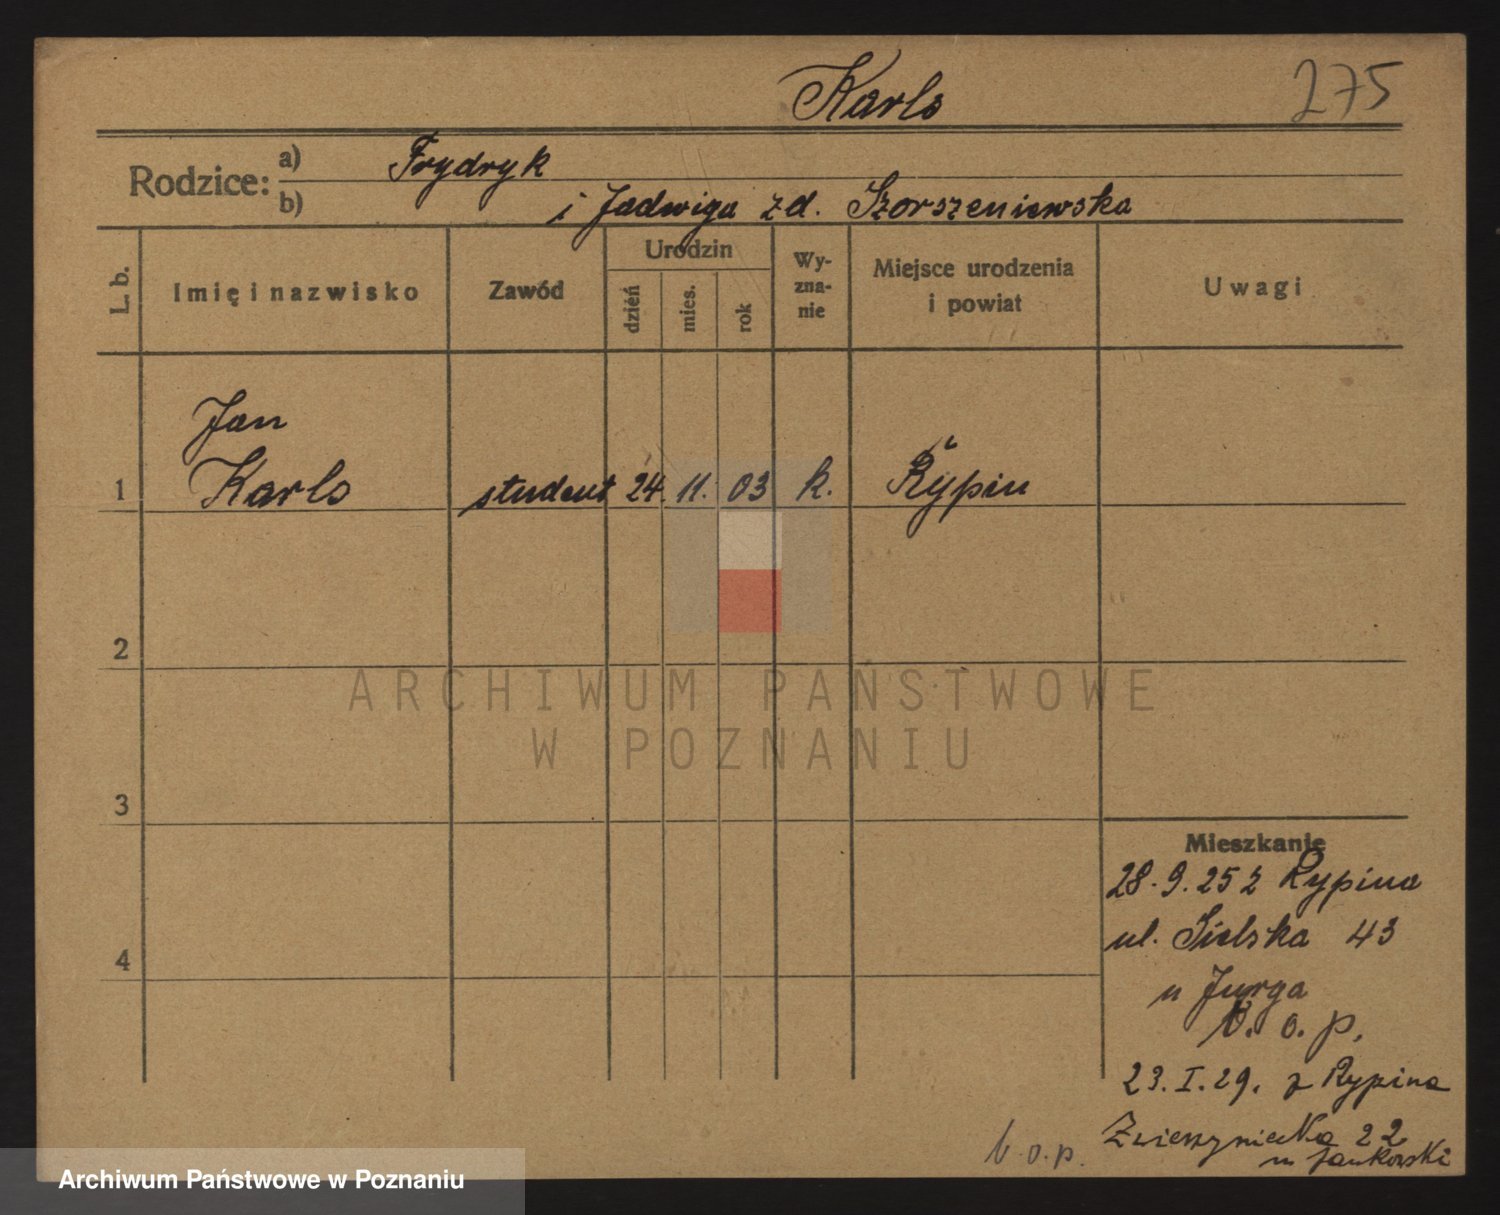 Karls
275
Rodzice: a) Frydryk
b) i Jadwiga zd. Szorszeniewska
L. b.
Imię i nazwisko
Zawód
Urodzin
dzień
mies.
rok
Wy-
zna-
nie
Miejsce urodzenia
i powiat
Uwagi
Jan
1 Karls student 24. 11. 03 k. Rypin
2
3
4
Mieszkanie
28.9.25 z Rypina
ul. Sielska 43
u Jurga
b. o. p.
23.I.29. z Rypina
Zwierzyniecka 22
u Jankowski
b.o.p.
ARCHIWUM PAŃSTWOWE
W POZNANIU
Archiwum Państwowe w Poznaniu